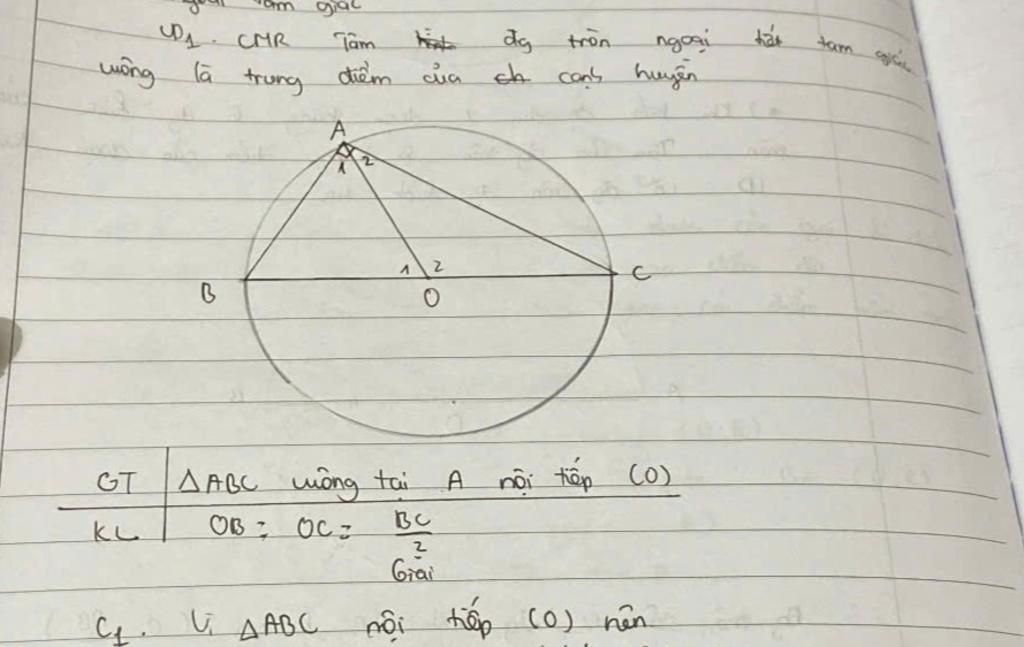 ngoại tam giác
VD1. CMR Tâm đg tròn ngoại tiếp tam giác
vuông là trung điểm của cạnh huyền
A
1 2
1 2
B O C
GT ΔABC vuông tại A nội tiếp (O)
KL OB = OC = BC/2
Giải
C1. Vì ΔABC nội tiếp (O) nên